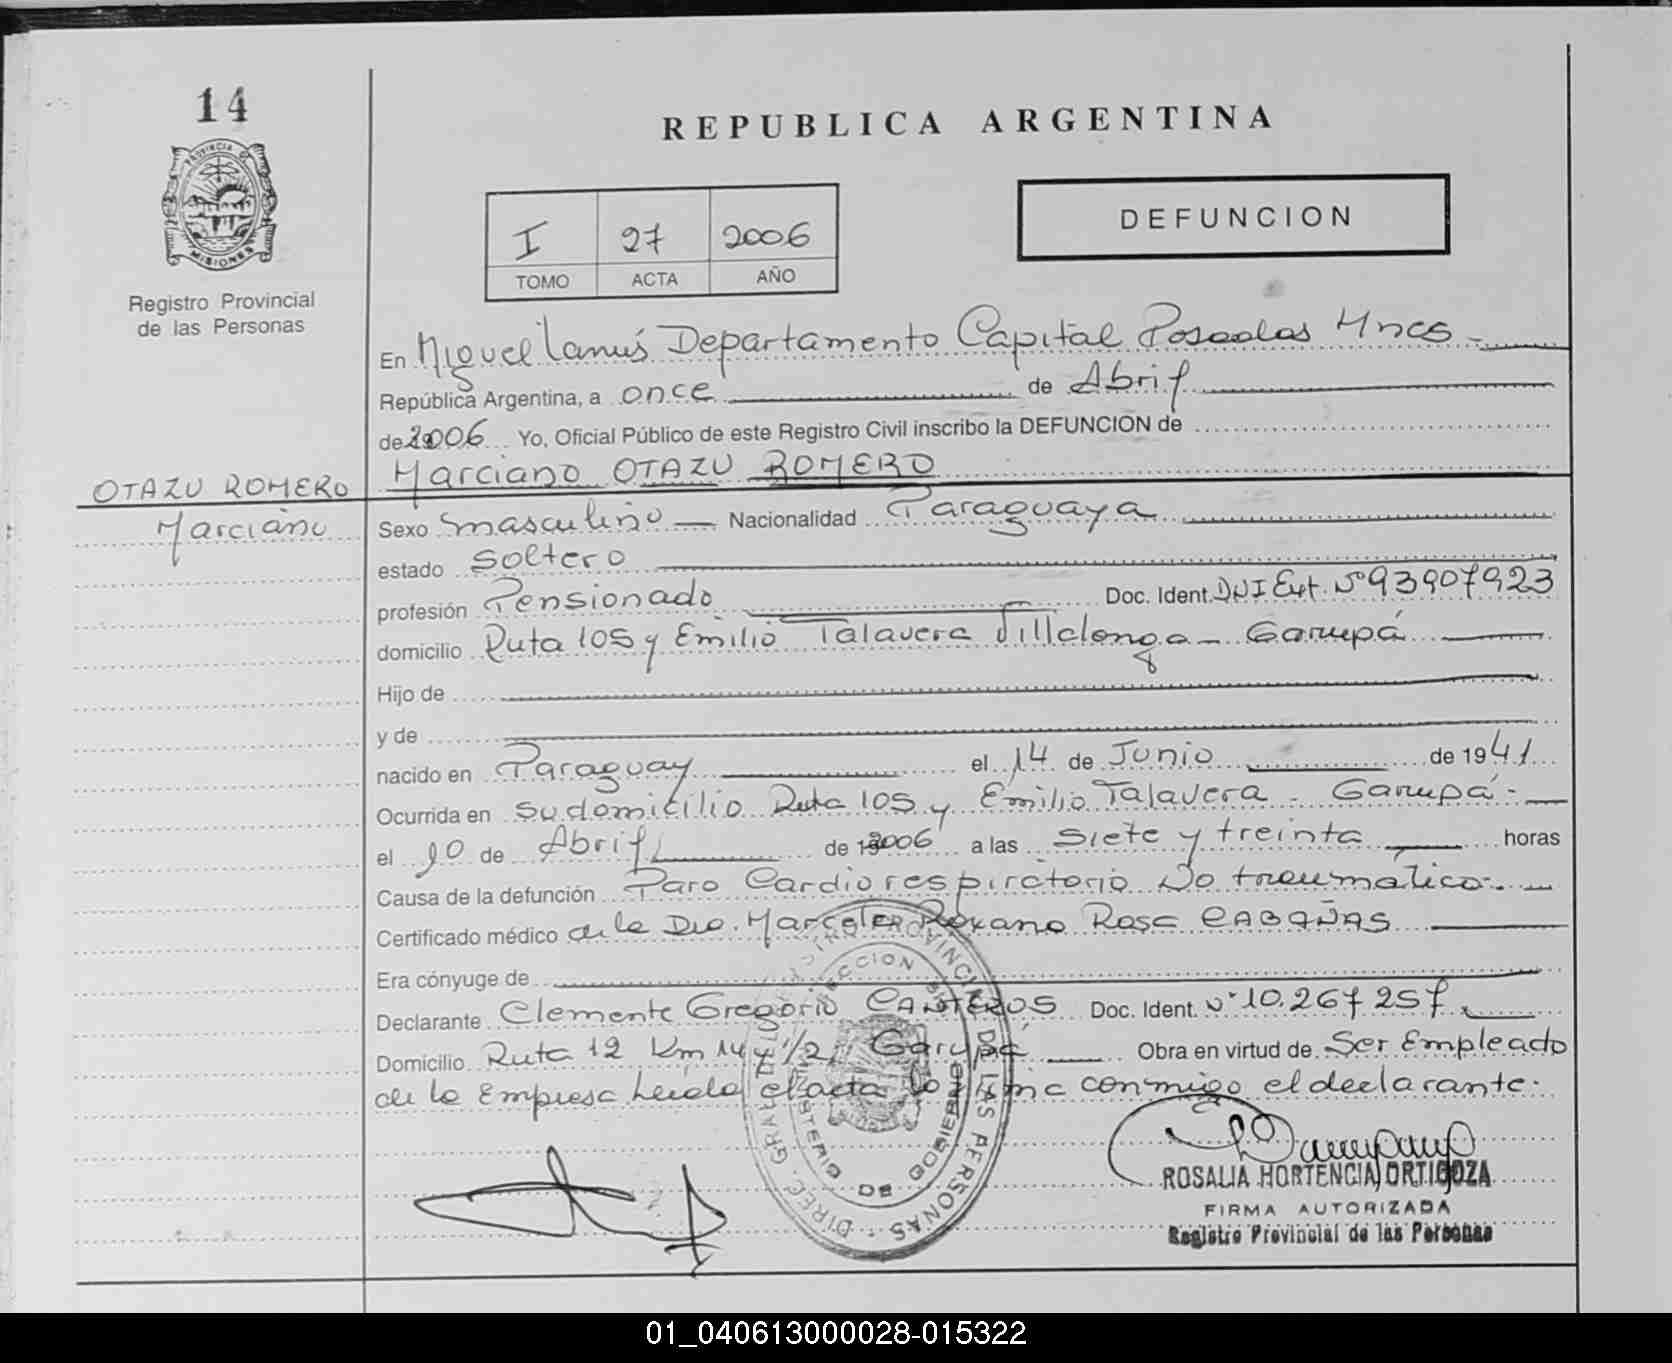 14
REPUBLICA ARGENTINA
PROVINCIA DE
MISIONES
Registro Provincial
de las Personas
I 27 2006
TOMO ACTA AÑO
DEFUNCION
En Miguel Lanús Departamento Capital Posadas Mnes -
República Argentina, a once de Abril
de 2006 Yo, Oficial Público de este Registro Civil inscribo la DEFUNCION de
Marciano OTAZU ROMERO
OTAZU ROMERO
Marciano
Sexo masculino Nacionalidad Paraguaya
estado Soltero
profesión Pensionado Doc. Ident. DNI Ext. Nº 93907923
domicilio Ruta 105 y Emilio Talavera Villalonga - Garupá
Hijo de
y de
nacido en Paraguay el 14 de Junio de 1941
Ocurrida en su domicilio Ruta 105 y Emilio Talavera - Garupá -
el 10 de Abril de 2006 a las siete y treinta horas
Causa de la defunción Paro Cardiorespiratorio No traumático -
Certificado médico de la Dra. Marcela Roxana Rosa CABAÑAS
Era cónyuge de
Declarante Clemente Gregorio CANTEROS Doc. Ident. Nº 10.267 257
Domicilio Ruta 12 Km 14 y 1/2, Garupá Obra en virtud de Ser Empleado
de la Empresa Leída el acta la firma conmigo el declarante.
DIREC. GRAL. DEL REGISTRO PROVINCIAL DE LAS PERSONAS
MINISTERIO DE GOBIERNO
ROSALIA HORTENCIA ORTIGOZA
FIRMA AUTORIZADA
Registro Provincial de las Personas
01_040613000028-015322